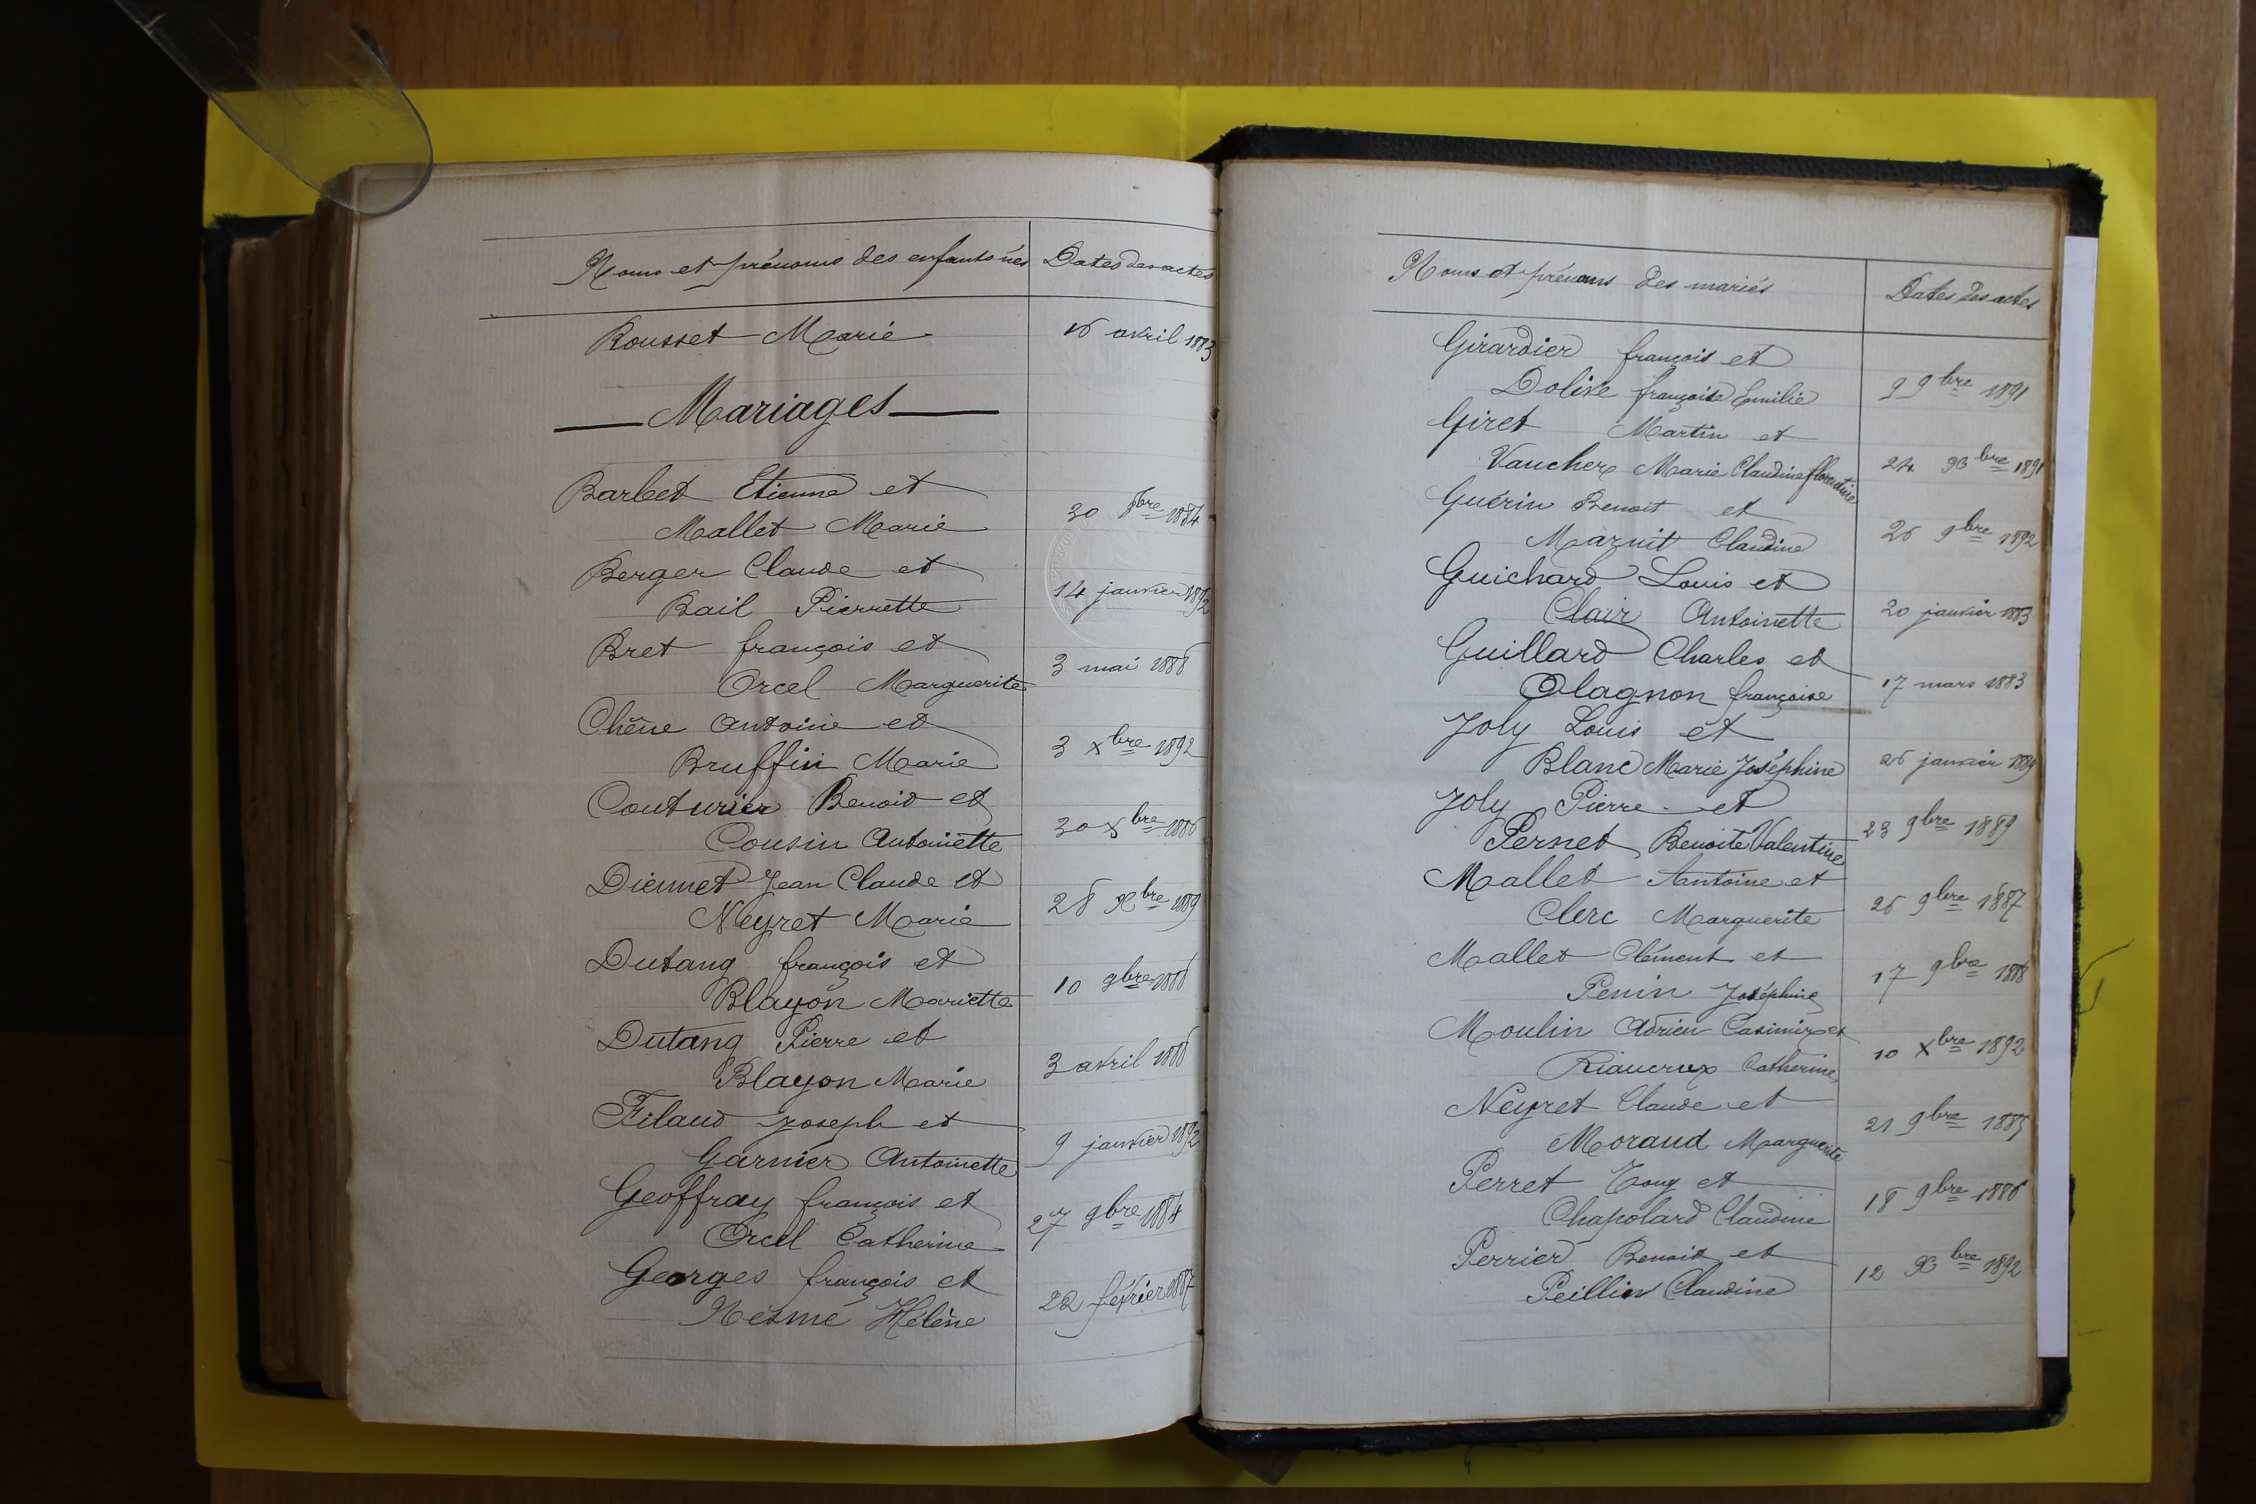 Noms et prénoms des enfants nés Dates des actes
Rousset Marie 16 avril 1883
Mariages
Barbet Etienne et
Mallet Marie 30 8bre 1884
Berger Claude et
Bail Pierrette 14 janvier 1892
Bret françois et
Orcel Marguerite 3 mai 1888
Chêne Antoine et
Bruffin Marie 3 Xbre 1892
Couturier Benoit et
Cousin Antoinette 30 Xbre 1886
Diennet Jean Claude et
Neyret Marie 28 Xbre 1889
Dutang françois et
Blayon Mariette 10 9bre 1886
Dutang Pierre et
Blayon Marie 3 avril 1886
Filaud Joseph et
Garnier Antoinette 9 janvier 1892
Geoffray françois et
Orcel Catherine 27 9bre 1884
Georges françois et
Nesme Hélène 22 février 1887
Noms et prénoms des mariés Dates des actes
Girardier françois et
Dolive françoise Emilie 9 9bre 1891
Giret Martin et
Vaucher Marie Claudine florentine 24 Xbre 1891
Guérin Benoit et
Mazuit Claudine 26 9bre 1892
Guichard Louis et
Clair Antoinette 20 janvier 1883
Guillard Charles et
Olagnon françoise 17 mars 1883
Joly Louis et
Blanc Marie Joséphine 26 janvier 1889
Joly Pierre et
Pernet Benoite Valentine 23 9bre 1889
Mallet Antoine et
Clerc Marguerite 26 9bre 1887
Mallet Clément et
Penin Joséphine 17 9bre 1888
Moulin Adrien Casimir et
Riaucrux Catherine 10 Xbre 1892
Neyret Claude et
Moraud Marguerite 21 9bre 1885
Perret Tony et
Chapolard Claudine 18 9bre 1886
Perrier Benoit et
Peillier Claudine 12 Xbre 1892